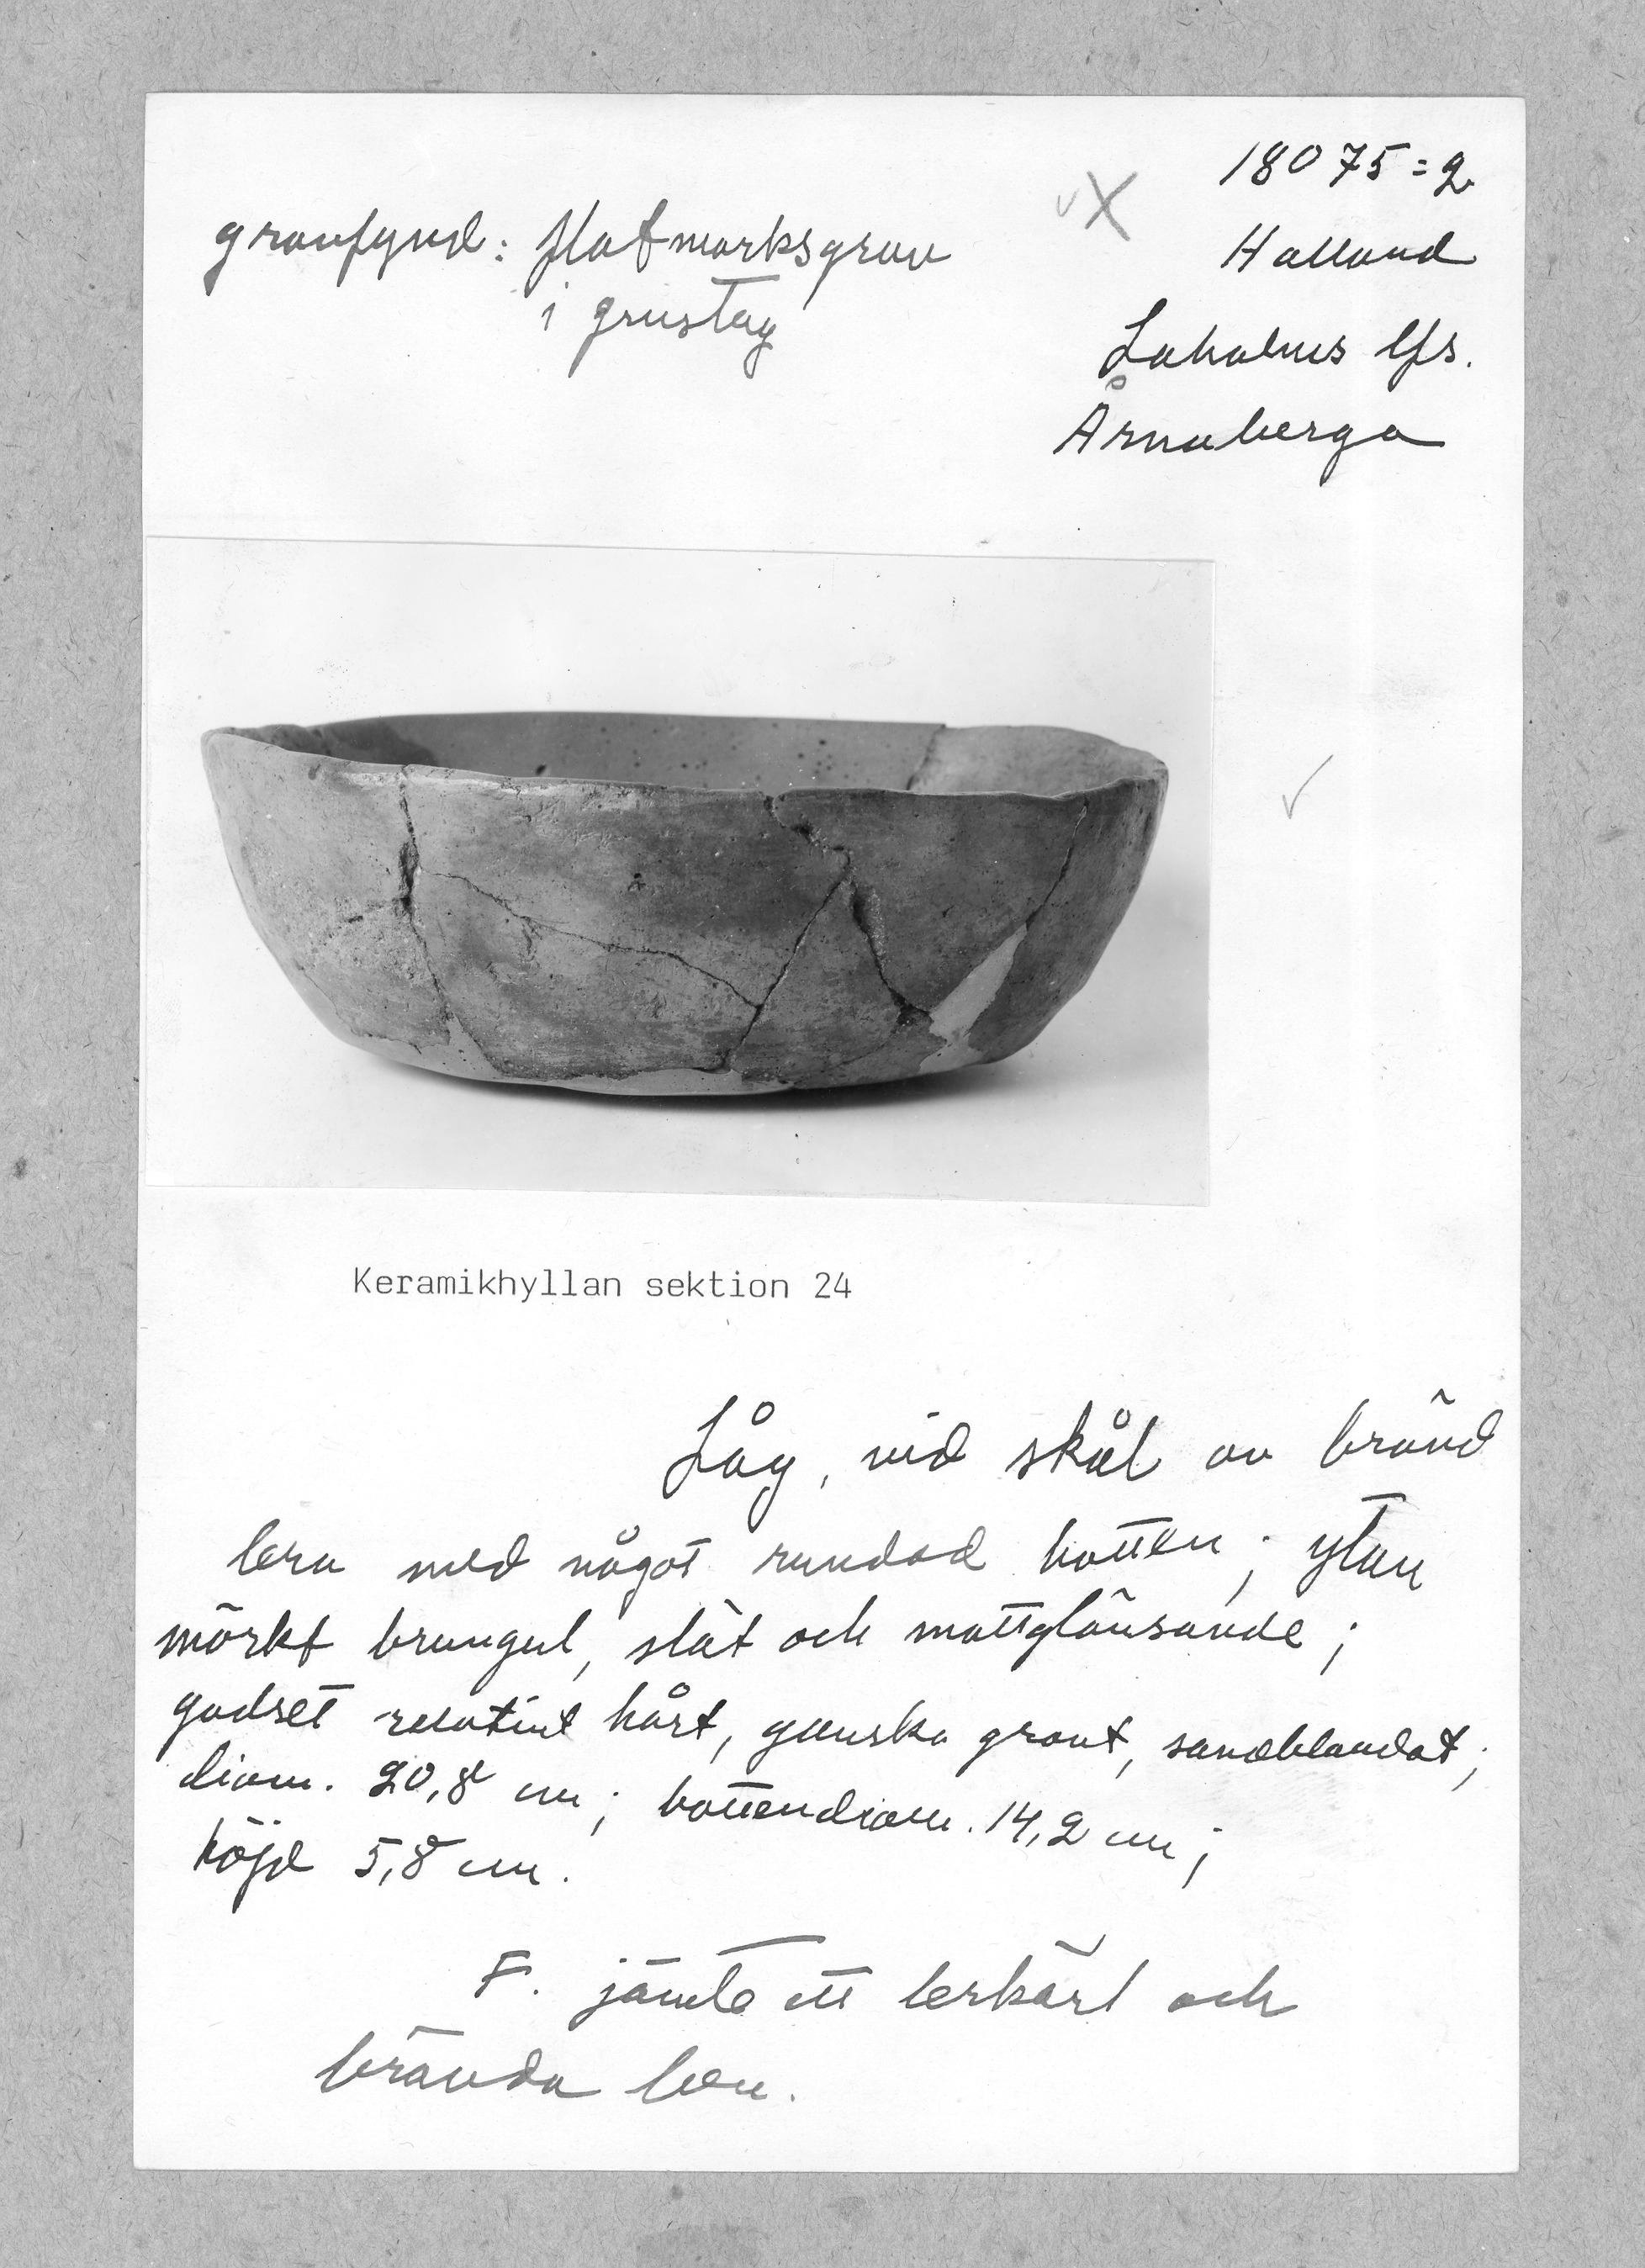 18075:2
gravfynd: flatmarksgrav
i grustag
Halland
Laholms lfs.
Årnaberga
Keramikhyllan sektion 24
Låg, vid skål av bränd
lera med något rundad botten; ytan
mörkt brungul, slät och mattglänsande;
godset relativt hårt, ganska grovt, sandblandat;
diam. 20,8 cm; bottendiam. 14,2 cm;
höjd 5,8 cm.
F. jämte ett lerkärl och
brända ben.